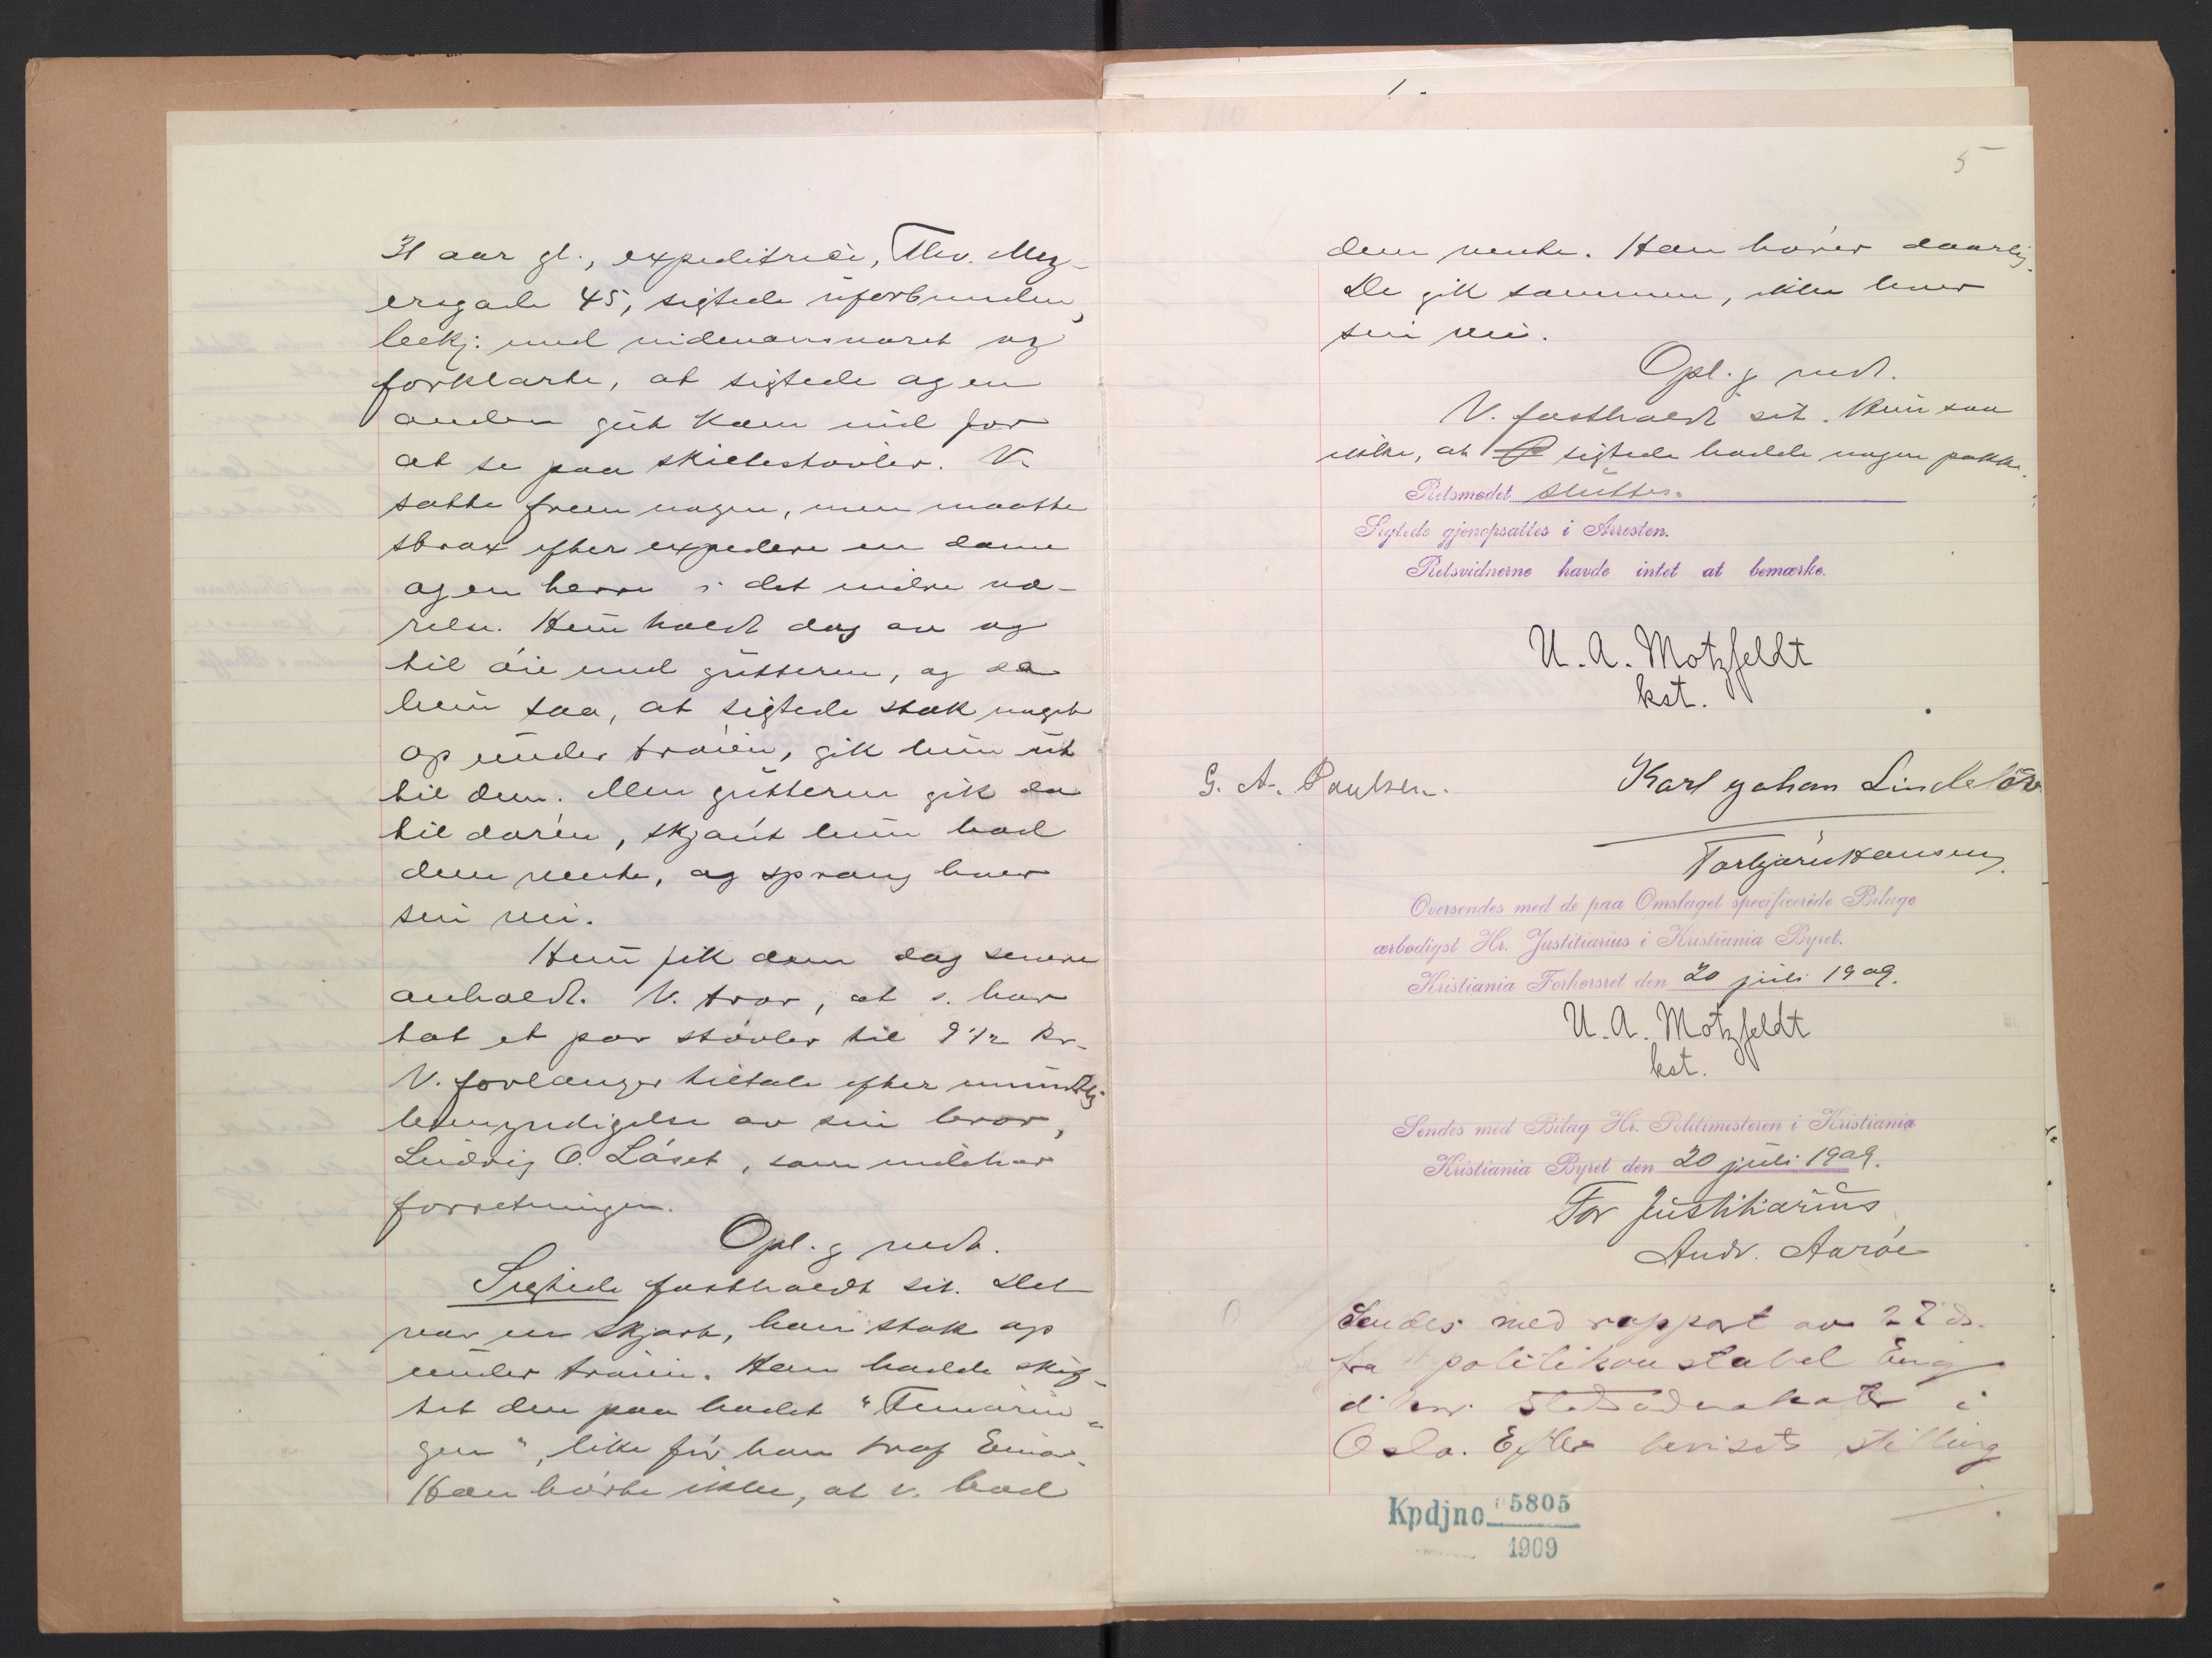 31 aar gl., expeditrice, Thv. Mey-
ersgade 45, sigtede uforbunden,
bekj: med vidneansvaret og
forklarte, at sigtede og en
anden gut kom ind for
at se paa skiltestøvler. V.
satte frem nogen, men maatte
strax efter expedere en dame
og en herre i det indre væ-
relse. Hun holdt dog av og
til øie med gutterne, og da
hun saa, at sigtede stak noget
op under trøien, gik hun ut
til dem. Men gutterne gik da
til døren, skjønt hun bad
dem vente, og sprang hver
sin vei.
Hun fik dem dog senere
anholdt. V. tror, at s. har
tat et par støvler til 9 1/2 kr.
V. forlanger tiltale efter mundtlig
bemyndigelse av sin bror,
Ludvig O. Låset, som indehar
forretningen.
Opl. g vedt.
Sigtede fastholdt sit. Det
var en skjort, han stak op
under trøien. Han hadde skif-
tet den paa badet
gen", like før han traf Einar.
Han hørte ikke, at v. bad
1.
5
dem vente. Han hører daarlig.
De gik sammen, ikke hver
sin vei.
Opl. g vedt.
V. fastholdt sit. Hun saa
ikke, at sigtede hadde nogen pakke.
Retsmødet sluttes.
Sigtede gjenopsattes i Arresten.
Retsvidnerne havde intet at bemærke.
U. A. Motzfeldt
kst.
G. A. Paulsen.
Karl Johan Lindeløv
Torbjørn Hansen
Oversendes med de paa Omslaget specificerede Bilage
ærbødigst Hr. Justitiarius i Kristiania Byret.
Kristiania Forhørsret den 20 juli 1909.
U. A. Motzfeldt
kst.
Sendes med Bilag Hr. Politimesteren i Kristiania
Kristiania Byret den 20 juli 1909.
For Justitiarius
Andr. Aarøe
Sendes med rapport av 22 ds.
fra politikonstabel Eng
d'hrr. Statsadvokater i
Oslo. Efter bevisets stilling
Kpdjno 5805
1909